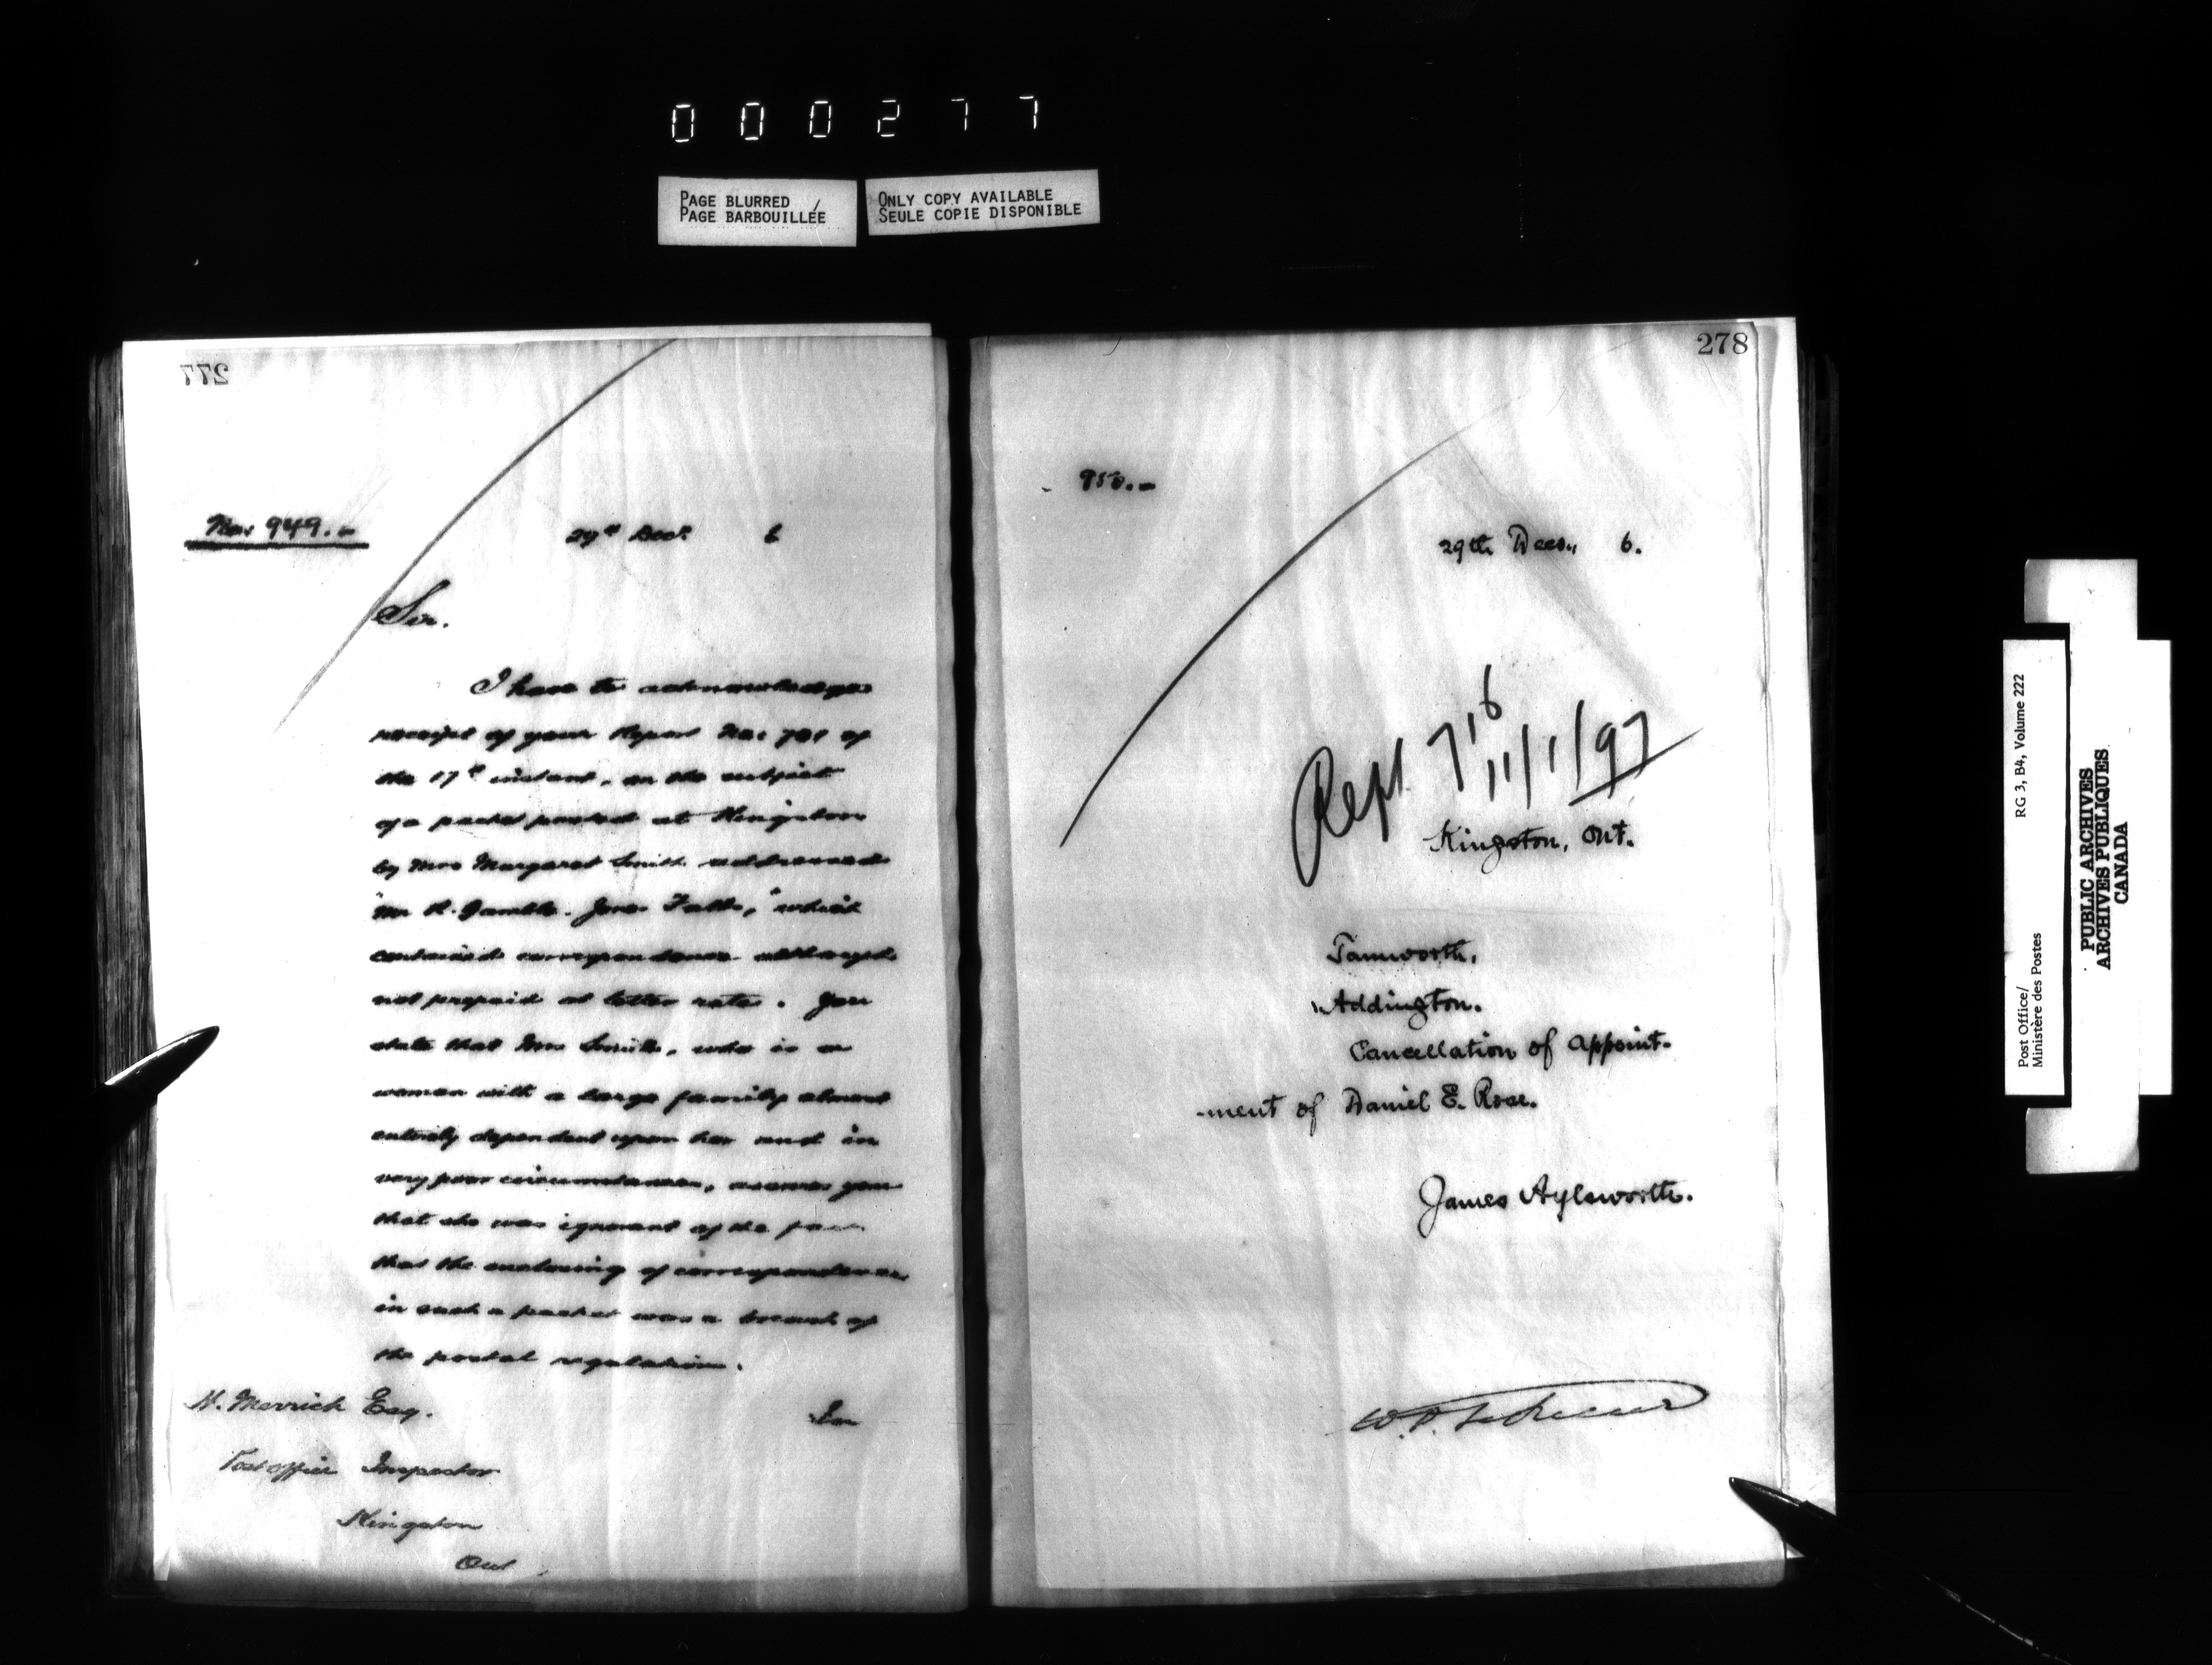 000277
PAGE BLURRED
PAGE BARBOUILLÉE
ONLY COPY AVAILABLE
SEULE COPIE DISPONIBLE
277
No. 949.-
29th Decr. 6
Sir.
I have to acknowledge
receipt of your Report No. 701 of
the 17th instant, on the subject
of a packet posted at Kingston
by Mrs Margaret Smith addressed
"Mr R. Gamble. Jones Falls," which
contained correspondence although
not prepaid at letter rate. You
state that Mrs Smith, who is a
woman with a large family almost
entirely dependent upon her and in
very poor circumstances, assures you
that she was ignorant of the fact
that the enclosing of correspondence
in such a packet was a breach of
the postal regulation.
H. Merrick Esq.
Post Office Inspector
Kingston
Ont
278
950.-
29th Decr., 6.
Rept 716
11/1/97
Kingston, Ont.
Tamworth,
Addington.
Cancellation of appoint-
-ment of Daniel E. Rose.
James Aylsworth.
Post Office/
Ministère des Postes
RG 3, B4, Volume 222
PUBLIC ARCHIVES
ARCHIVES PUBLIQUES
CANADA